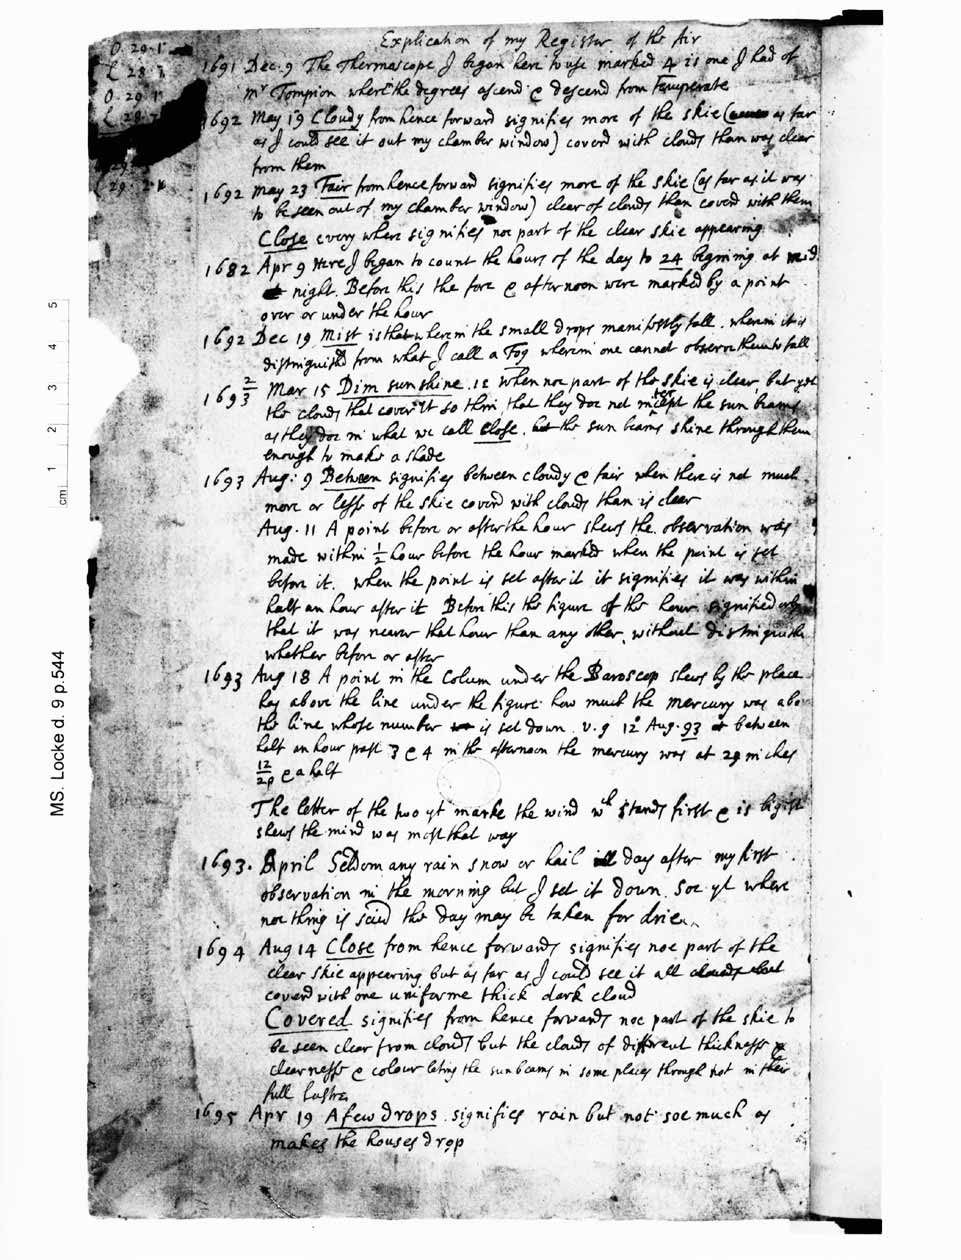 Explication of my Register of the Air
O. 29. 1
L 28. 7
O. 29 1
L 28. 7
29
29. 2.
1691 Dec. 9 The Thermoscope I began here to use marked 4 is one I had of
Mr Tompion where the degrees ascend & descend from Temperate
1692 May 19 Cloudy from hence forward signifies more of the skie ( as far
as I could see it out my chamber window) coverd with clouds than was clear
from them
1692 May 23 Fair from hence forward signifies more of the skie (as far as it was
to be seen out of my chamber window) clear of clouds than coverd with them
Close every where signifies noe part of the clear skie appearing
1682 Apr 9 Here I began to count the hours of the day to 24 begining at mid
night. Before this the fore & afternoon were marked by a point
over or under the hour
1692 Dec 19 Mist is that wherein the small drops manifestly fall. wherin it is
distinguishd from what I call a Fog wherein one cannot observe them to fall
169 2/3 Mar 15 Dim sun shine. is when noe part of the skie is clear but yet
the clouds that cover it so thin that they doe not intercept the sun beams
as they doe in what we call close. the sun beams shine through them
enough to make a shade
1693 Aug: 9 Between signifies between cloudy & fair when there is not much
more or lesse of the skie coverd with clouds than is clear
Aug. 11 A point before or after the hour shews the observation was
made within 1/2 hour before the hour marked when the point is set
before it. when the point is set after it it signifies it was within
half an hour after it Before this the figure of the hour signified only
that it was nearer that hour than any other, without distinguishing
whether before or after
1693 Aug 18 A point in the Colum under the Baroscop shews by the place
has above the line under the figure how much the mercury was above
the line whose number is set down. v.g 12o Aug. 93 between
half an hour past 3 & 4 in the afternoon the mercury was at 29 inches
12/20 & a half
The letter of the two yt marke the wind wch stands first & is bigest
shews the wind was most that way
1693. April Seldom any rain snow or hail day after my first
observation in the morning but I set it down. soe yt where
nothing is said the day may be taken for drie
1694 Aug 14 Close from hence forwards signifies noe part of the
clear skie appearing but as far as I could see it all
coverd with one uniforme thick dark cloud
Covered signifies from hence forwards noe part of the skie to
be seen clear from clouds but the clouds of different thicknesse
clearnesse & colour leting the sunbeams in some places through not in their
full lustre
1695 Apr 19 A few drops. signifies rain but not soe much as
makes the houses drop
cm
1 2 3 4 5
MS. Locke d. 9 p.544